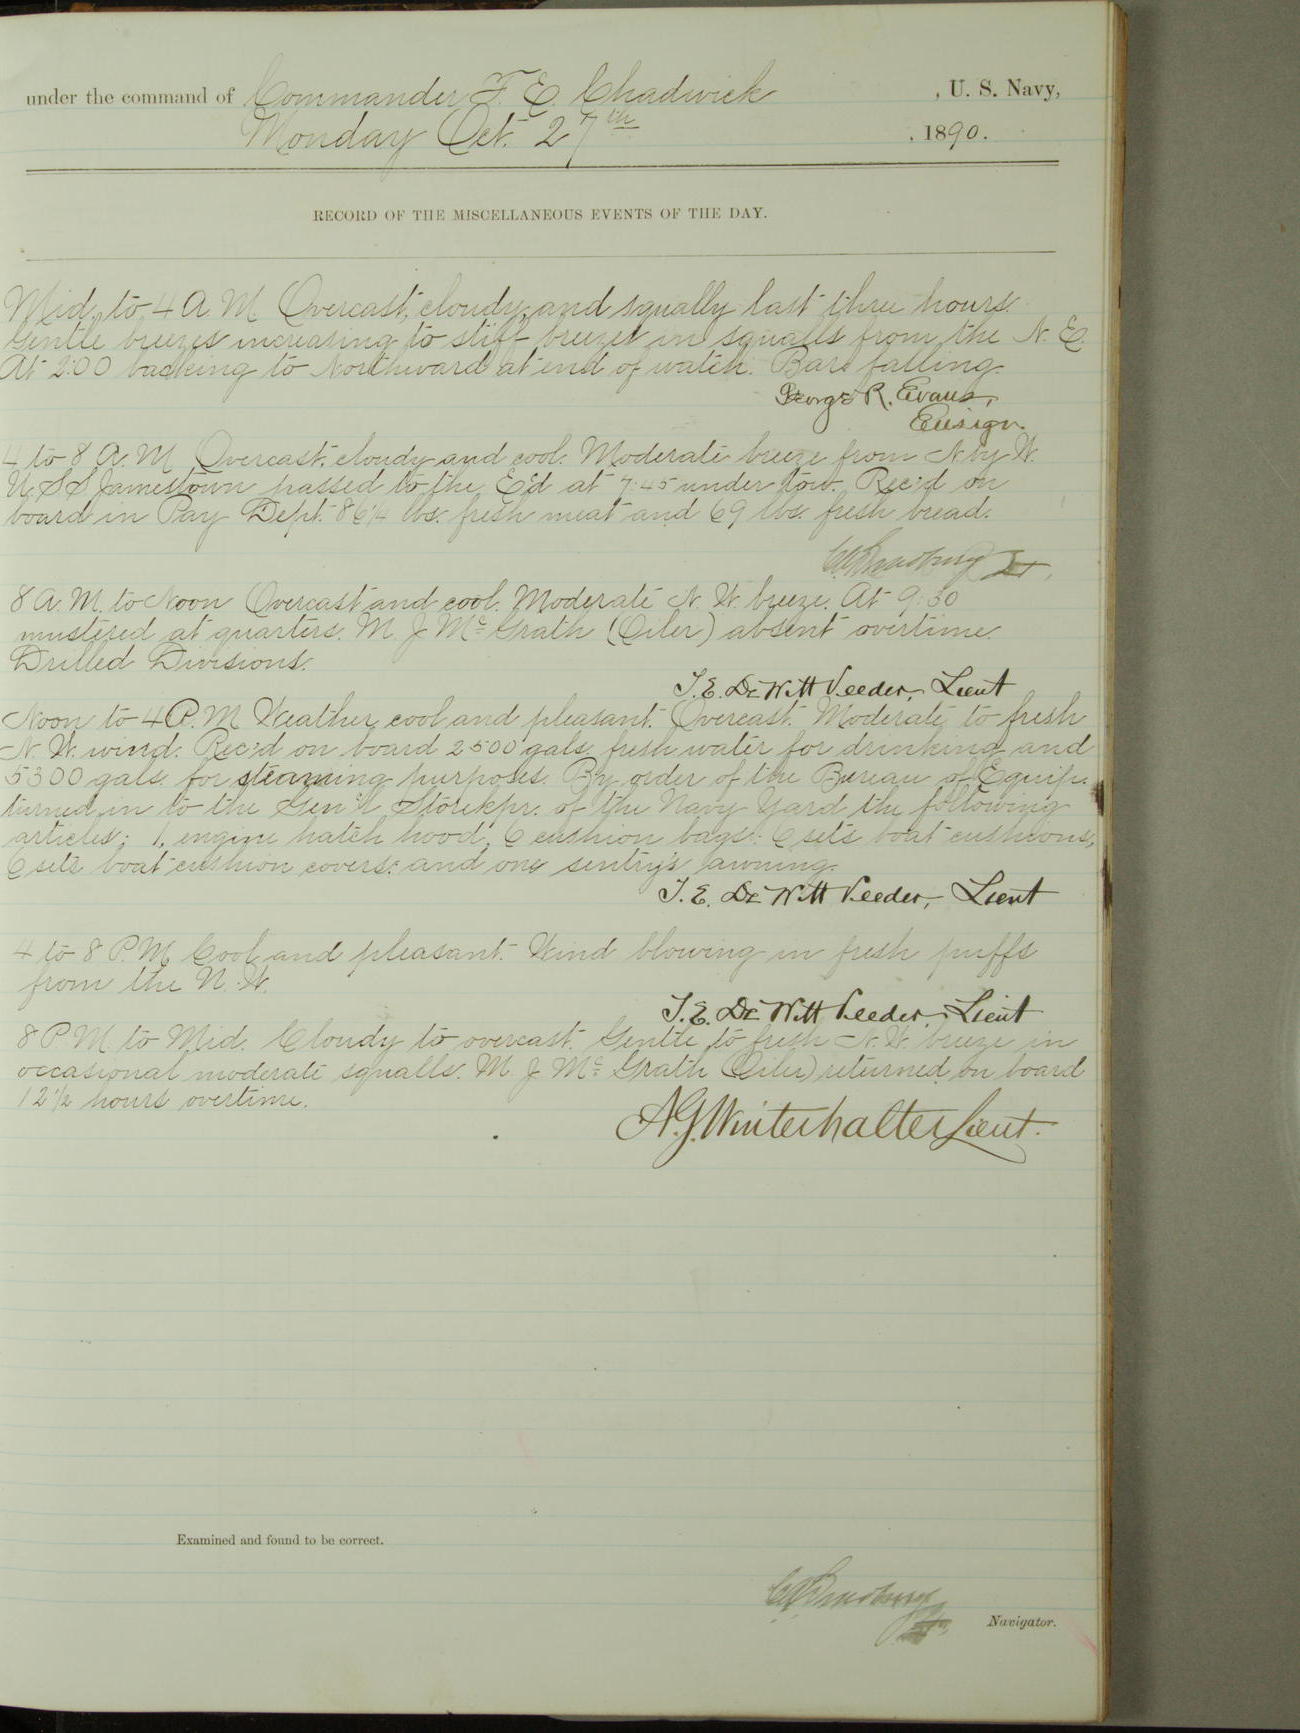 under the command of Commander F. E. Chadwick, U. S. Navy,
Monday Oct. 27th, 1890.
RECORD OF THE MISCELLANEOUS EVENTS OF THE DAY.
Mid. to 4 A.M. Overcast, cloudy, and squally last three hours.
Gentle breezes increasing to stiff breezes in squalls from the N. E.
At 2:00 backing to Northward at end of watch. Baro falling.
George R. Evans,
Ensign.
4 to 8 A.M. Overcast, cloudy and cool. Moderate breeze from N by W.
U.S.S. Jamestown passed to the E'd at 7:45 under tow. Rec'd on
board in Pay Dept. 86 1/4 lbs. fresh meat and 69 lbs. fresh bread.
8 A.M. to Noon Overcast and cool. Moderate N. W. breeze. At 9:30
mustered at quarters. M. J. McGrath (Oiler) absent overtime.
Drilled Divisions.
T. E. DeWitt Veeder, Lieut
Noon to 4 P.M. Weather cool and pleasant. Overcast. Moderate to fresh
N. W. wind. Rec'd on board 2500 gals. fresh water for drinking and
5300 gals. for steaming purposes. By order of the Bureau of Equip.
turned in to the Gen'l Storekpr. of the Navy Yard the following
articles; 1, engine hatch hood, 6 cushion bags: 6 sets boat cushions,
6 sets boat cushion covers: and one sentry's awning.
T. E. DeWitt Veeder, Lieut
4 to 8 P.M. Cool and pleasant. Wind blowing in fresh puffs
from the N. W.
T. E. DeWitt Veeder, Lieut
8 P.M to Mid. Cloudy to overcast. Gentle to fresh N. W. breeze in
occasional moderate squalls. M. J. McGrath (Oiler) returned on board
12 1/2 hours overtime.
A. G. Winterhalter Lieut.
Examined and found to be correct.
Navigator.